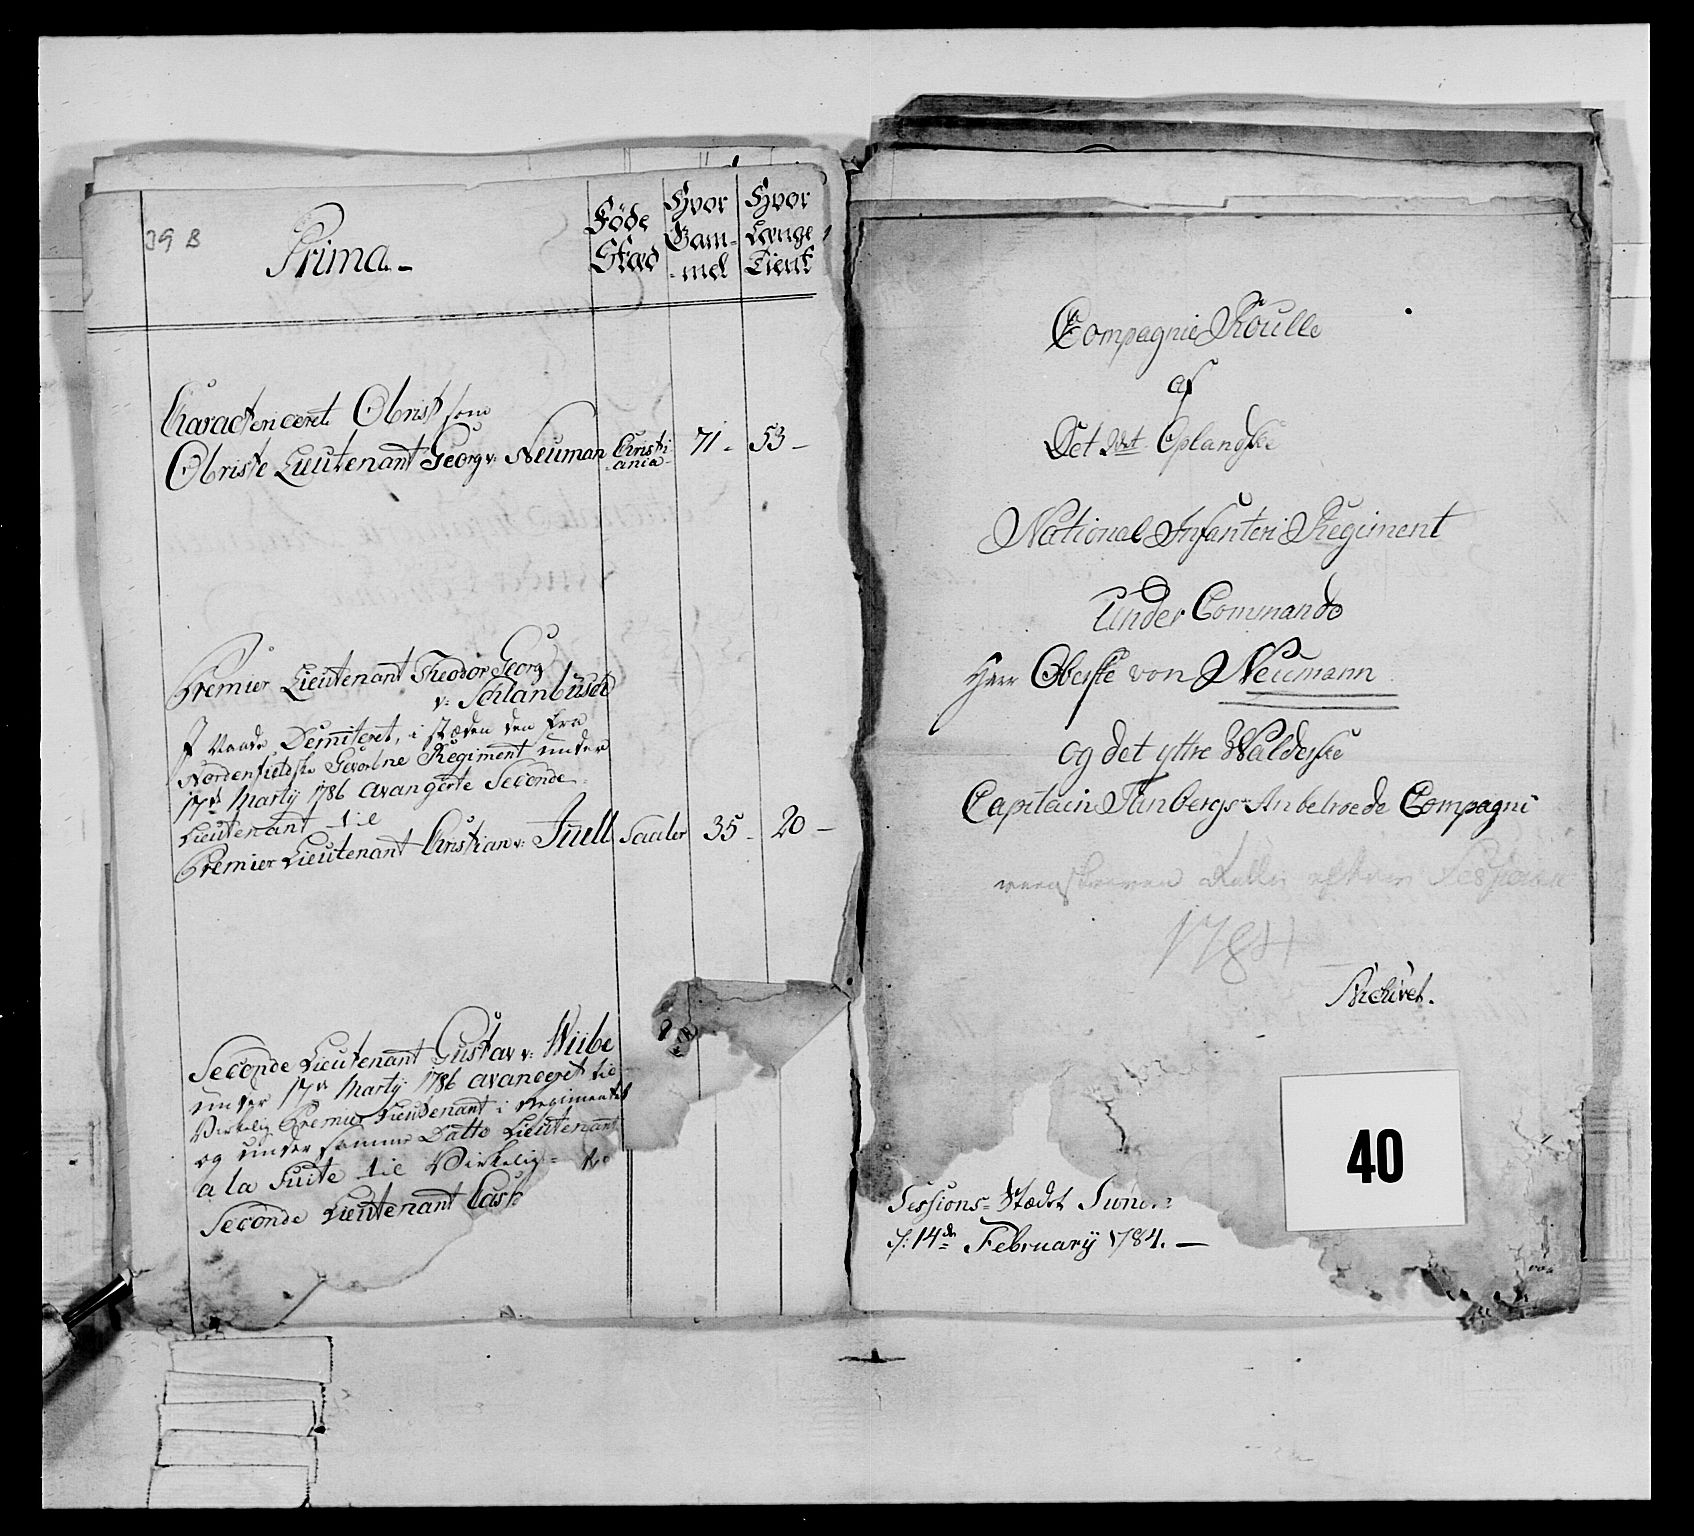 39 B
Prima.-
Föde Stad
Hvor Gam- -mel
Hvor Længe Tient
Charactericeret Obrist som
Obriste Lieutenant Georg v: Neuman Christi -ania- 71- 53-
Premier Lieutenant Theodor Georg
v: Schlanbusch
Naade Demiteret, i stæden den fra
Nordenfieldske Gevorbne Regiment under
17de Martij 1786 avangerte Seconde
Lieutenant til
Premier Lieutenant Christian v: Juell 35- 20-
Seconde Lieutenant Gustav v: Wiibe
under 17de Martij 1786 avanceret til
Virkelig Premier Lieutenant i Regimentet
og under samme Datto Lieutenant
a la Suite til Virkelig=
Seconde Lieutenant
Compagnie Roulle
af
Det 2det Oplangske
National Infanteri Regiment
Under Commando
Herr Oberste von Neumann
og det yttre Walderske
Capitain Anbetroede Compagni
Sessionen
1784
Archivet.
40
Sessions=Stædet
d: 14de February 1784.-